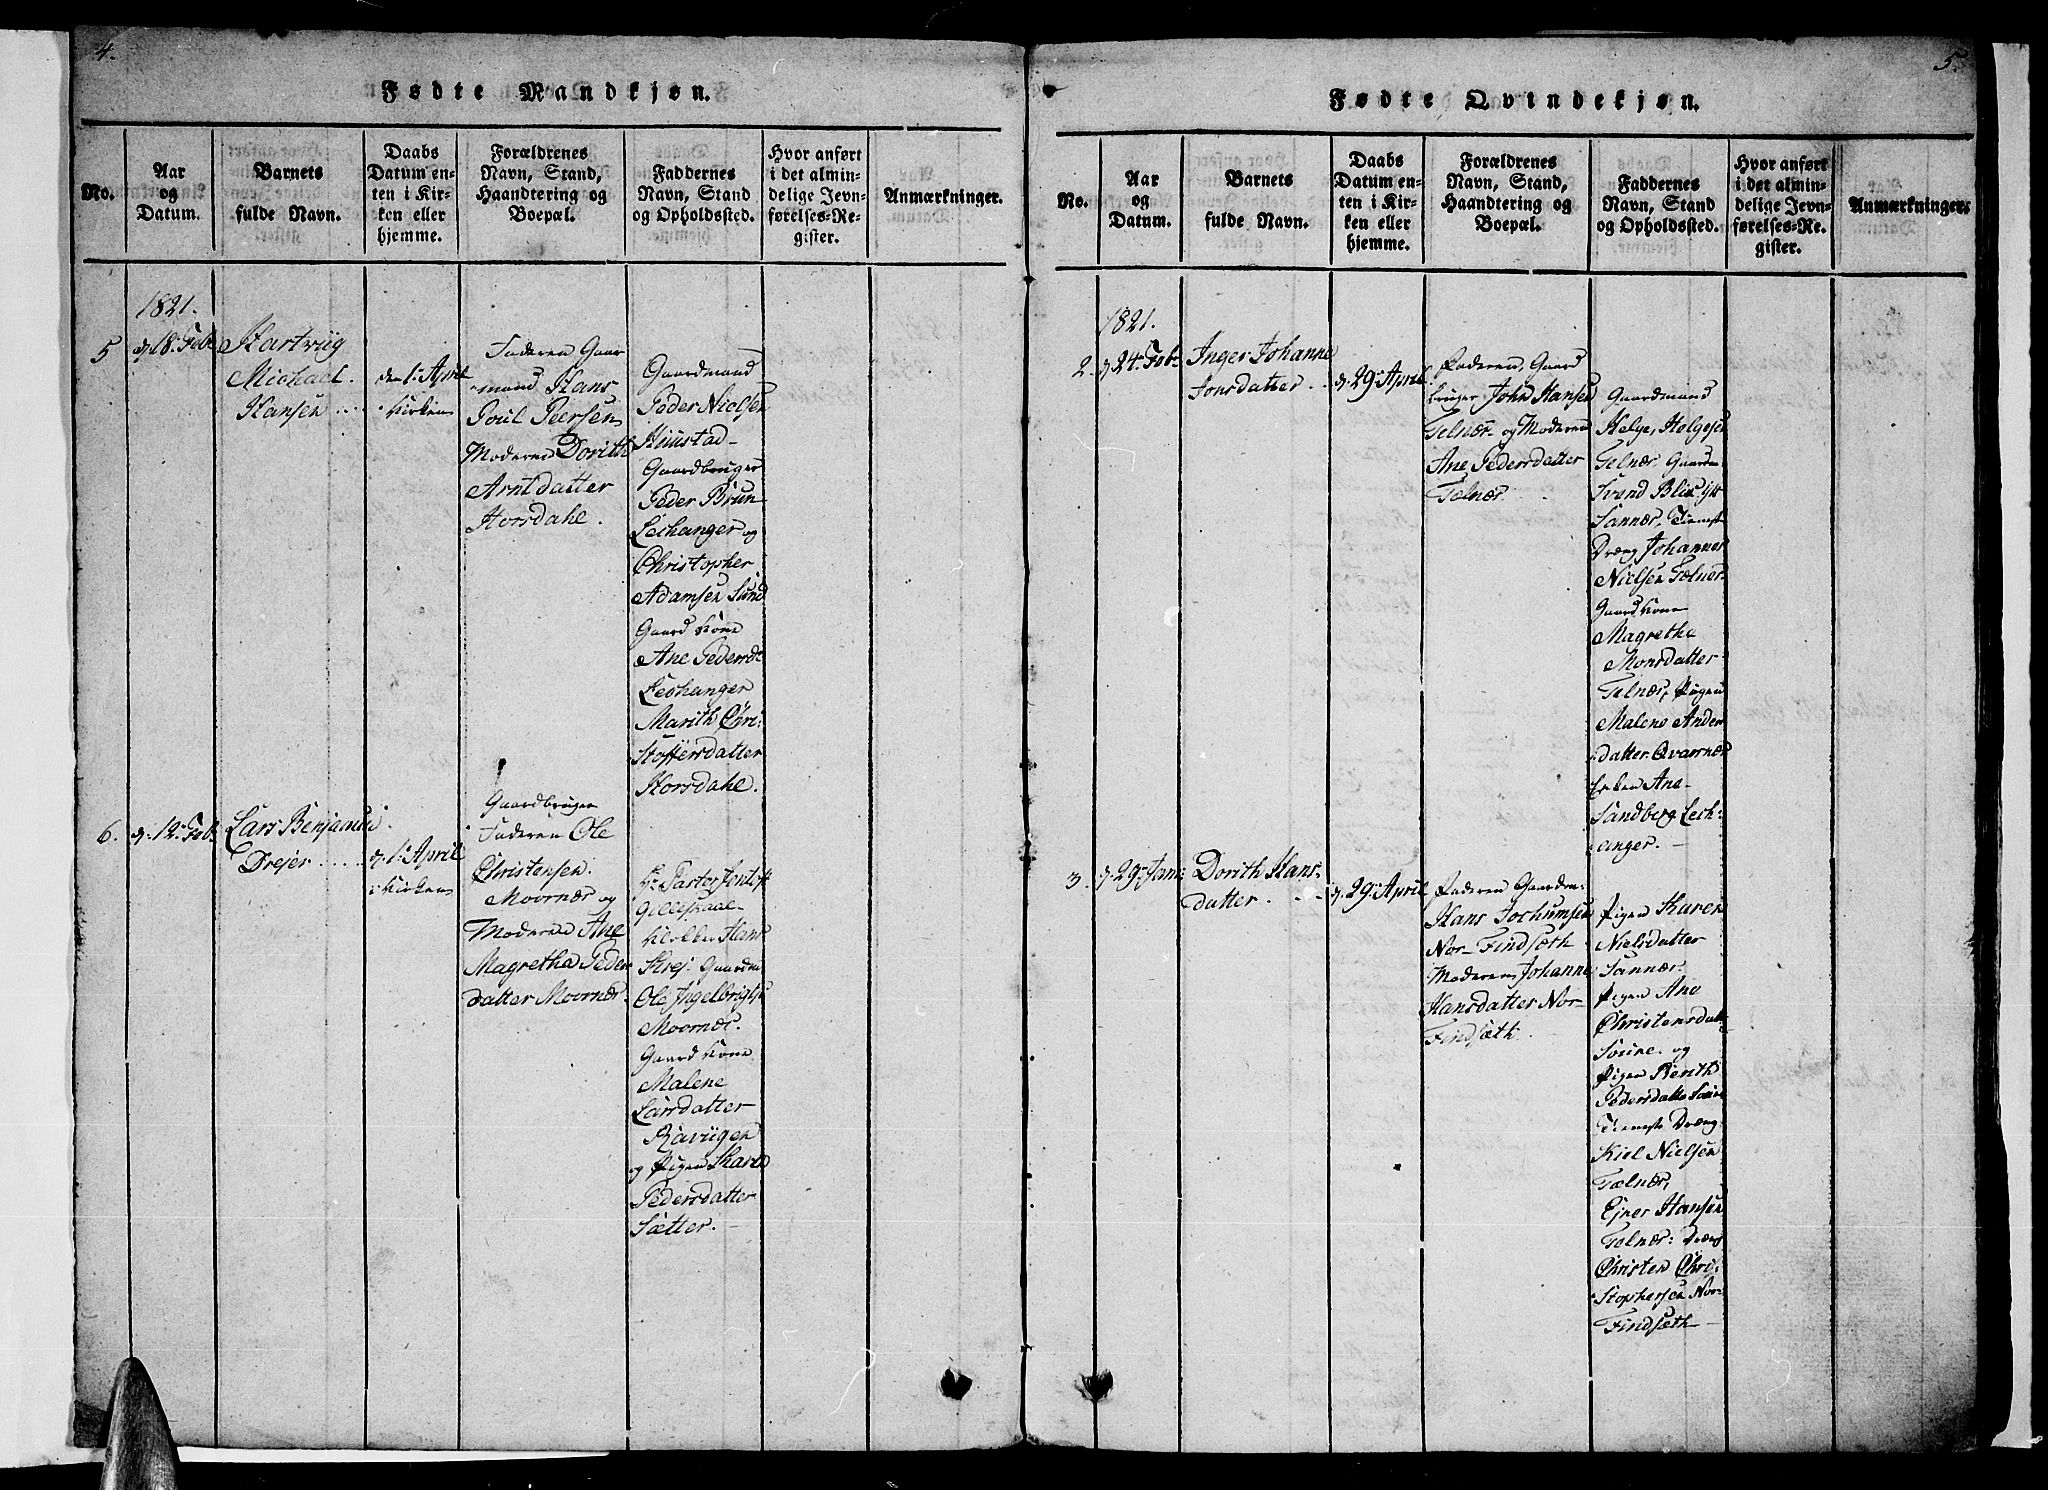 4.
Fødte Mandkjøn.
No.
Aar
og
Datum.
Barnets
fulde Navn.
Daabs
Datum en-
ten i Kir-
ken eller
hjemme.
Forældrenes
Navn, Stand,
Haandtering og
Boepæl.
Faddernes
Navn, Stand
og Opholdssted.
Hvor anført
i det almin-
delige Jevn-
førelses-Re-
gister.
Anmærkninger.
1821.
5
d. 18. Feb.
Hartvig
Michael
Hansen
den 1. April
i Kirken
Faderen Gaar
mand Hans
Poul Peersen
Moderen Dorith
Arntdatter
Horsdahl.
Gaardmand
Peder Nielsen
Hiustad
Gaardbruger
Peder Brun
Lechanger og
Christopher
Adamsen Sund
Gaard Kone
Ane Pedersd.
Lechanger
Marith Chri-
stoffersdatter
Horsdahl.
6.
d. 12. Feb.
Lars Benjamin
Drejer
d. 1. April
i Kirken
Gaardbruger
Faderen Ole
Christensen
Moornær og
Moderen Ane
Magretha Peders
datter Moornær
Hr. Pastor Jentoft
Gildeskaal
Klokker Hans
Skej. Gaardm
Ole Ingelbrigts
Moornær.
Gaard Kone
Malene
Larsdatter
Ravigen
og Pigen Karen
Pedersdatter
Sætter.
5.
Fødte Qvindekjøn.
No.
Aar
og
Datum.
Barnets
fulde Navn.
Daabs
Datum en-
ten i Kir-
ken eller
hjemme.
Forældrenes
Navn, Stand,
Haandtering og
Boepæl.
Faddernes
Navn, Stand
og Opholdssted.
Hvor anført
i det almin-
delige Jevn-
førelses-Re-
gister.
Anmærkninger.
1821.
2.
d. 24. Feb.
Inger Johanne
Jonsdatter
d. 29. April
Faderen, Gaard
bruger John Hansen
Telnær og Moderen
Ane Pedersdatter
Telnær
Gaardmand
Helge Helgesen
Telnær, Gaardm
Svend
Sannær, Tienest
Dreng Johannes
Nielsen Telnær
Gaard Kone
Magrethe
Monsdatter
Telnær, Pigen
Malene Anders
datter Qvarnær
Enken Ane
Sandberg Lech-
anger.
3.
d. 29. Jan.
Dorith Hans-
datter
d. 29. April
Faderen Gaardm
Hans Jochumsen
Nor-Findsæth
Moderen Johanne
Hansdatter Nor-
Findsæth.
Pigen Karen
Nielsdatter
Sannær
Pigen Ane
Christensdatt
og
Pigen
Pedersdatter
Tieneste Dreng
Kiel Nielsen
Telnær,
Ejner Hansen
Telnær: Dreng
Christen Chri-
stophersen Nor-
Findsæth